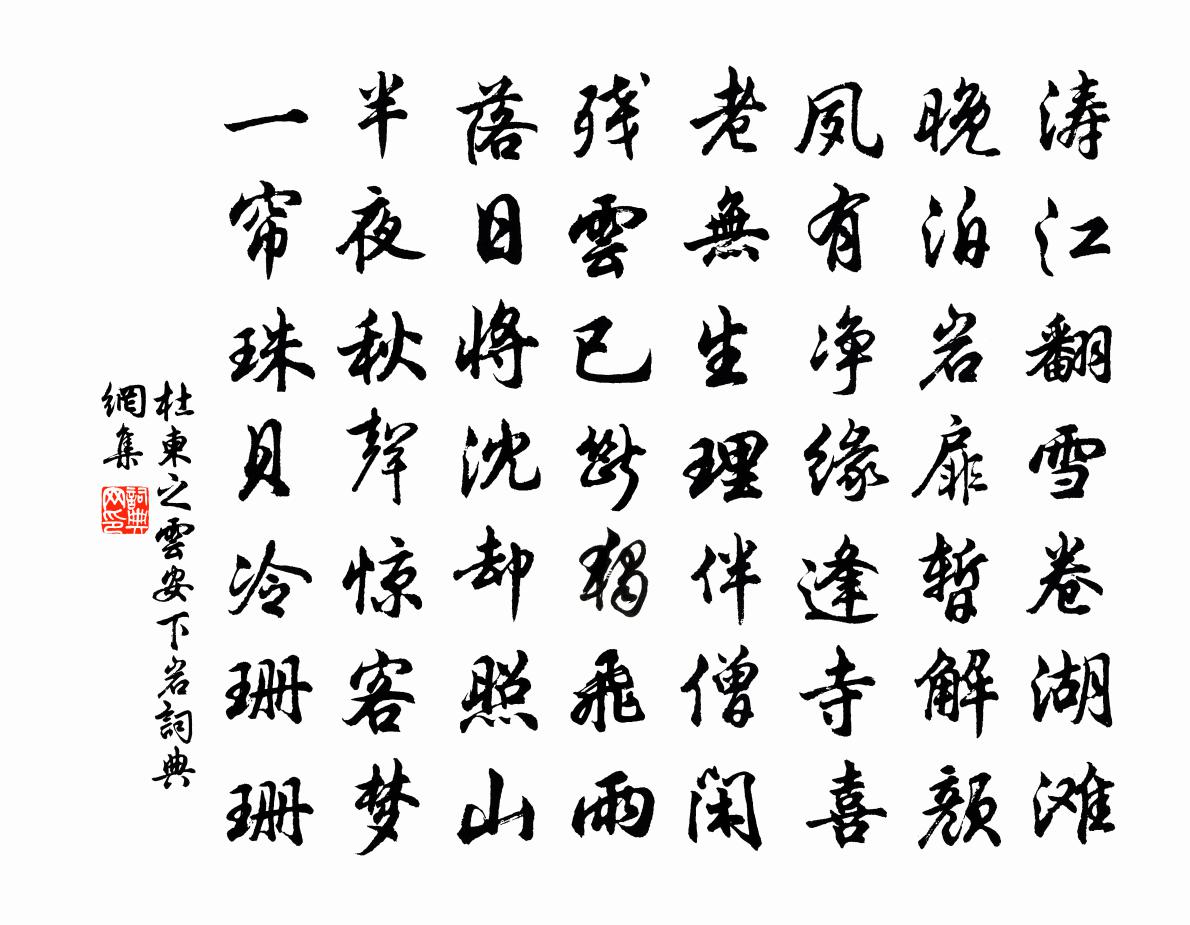 涛江翻雪卷湖滩
晚泊岩扉暫解顔
夙有净緣逢寺喜
老無生理伴僧閑
残雲已断獨飛雨
落日將沈却照山
半夜秋聲惊客梦
一帘珠貝冷珊珊
杜東之雲安下岩詞典
網集
詞典網印